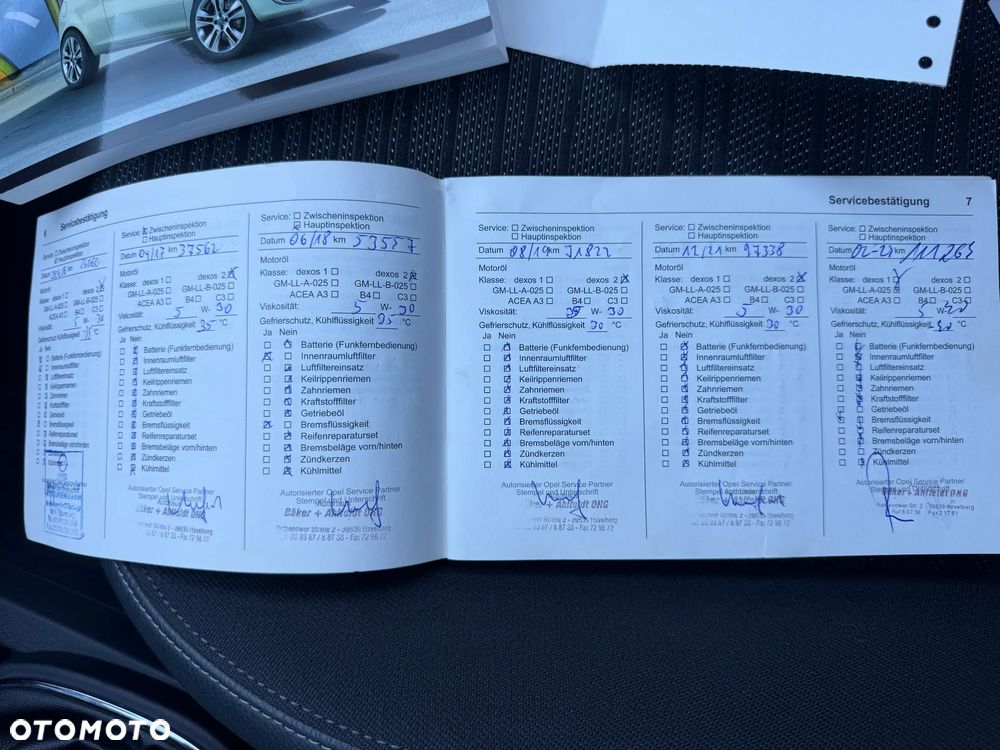 6 Servicebestätigung
Service: Zwischeninspektion
Hauptinspektion
Datum km
Motoröl
Klasse: dexos 1 dexos 2
GM-LL-A-025 GM-LL-B-025
ACEA A3 B4 C3
Viskosität: 5 W- 30
Gefrierschutz, Kühlflüssigkeit 35 °C
Ja Nein
Batterie (Funkfernbedienung)
Innenraumluftfilter
Luftfiltereinsatz
Keilrippenriemen
Zahnriemen
Kraftstofffilter
Getriebeöl
Bremsflüssigkeit
Reifenreparaturset
Bremsbeläge vorn/hinten
Zündkerzen
Kühlmittel
Service: Zwischeninspektion
Hauptinspektion
Datum 04/17 km 37562
Motoröl
Klasse: dexos 1 dexos 2
GM-LL-A-025 GM-LL-B-025
ACEA A3 B4 C3
Viskosität: 5 W- 30
Gefrierschutz, Kühlflüssigkeit 35 °C
Ja Nein
Batterie (Funkfernbedienung)
Innenraumluftfilter
Luftfiltereinsatz
Keilrippenriemen
Zahnriemen
Kraftstofffilter
Getriebeöl
Bremsflüssigkeit
Reifenreparaturset
Bremsbeläge vorn/hinten
Zündkerzen
Kühlmittel
Autorisierter Opel Service Partner
Stempel und Unterschrift
Service: Zwischeninspektion
Hauptinspektion
Datum 06/18 km
Motoröl
Klasse: dexos 1 dexos 2
GM-LL-A-025 GM-LL-B-025
ACEA A3 B4 C3
Viskosität: 5 W- 30
Gefrierschutz, Kühlflüssigkeit 35 °C
Ja Nein
Batterie (Funkfernbedienung)
Innenraumluftfilter
Luftfiltereinsatz
Keilrippenriemen
Zahnriemen
Kraftstofffilter
Getriebeöl
Bremsflüssigkeit
Reifenreparaturset
Bremsbeläge vorn/hinten
Zündkerzen
Kühlmittel
Autorisierter Opel Service Partner
Stempel und Unterschrift
Bäker + Ahlfeldt OHG
Servicebestätigung 7
Service: Zwischeninspektion
Hauptinspektion
Datum 08/19 km 71822
Motoröl
Klasse: dexos 1 dexos 2
GM-LL-A-025 GM-LL-B-025
ACEA A3 B4 C3
Viskosität: W- 30
Gefrierschutz, Kühlflüssigkeit 30 °C
Ja Nein
Batterie (Funkfernbedienung)
Innenraumluftfilter
Luftfiltereinsatz
Keilrippenriemen
Zahnriemen
Kraftstofffilter
Getriebeöl
Bremsflüssigkeit
Reifenreparaturset
Bremsbeläge vorn/hinten
Zündkerzen
Kühlmittel
Autorisierter Opel Service Partner
Stempel und Unterschrift
Service: Zwischeninspektion
Hauptinspektion
Datum 12/21 km 97338
Motoröl
Klasse: dexos 1 dexos 2
GM-LL-A-025 GM-LL-B-025
ACEA A3 B4 C3
Viskosität: 5 W- 30
Gefrierschutz, Kühlflüssigkeit 30 °C
Ja Nein
Batterie (Funkfernbedienung)
Innenraumluftfilter
Luftfiltereinsatz
Keilrippenriemen
Zahnriemen
Kraftstofffilter
Getriebeöl
Bremsflüssigkeit
Reifenreparaturset
Bremsbeläge vorn/hinten
Zündkerzen
Kühlmittel
Autorisierter Opel Service Partner
Service: Zwischeninspektion
Hauptinspektion
Datum km
Motoröl
Klasse: dexos 1 dexos 2
GM-LL-A-025 GM-LL-B-025
ACEA A3 B4 C3
Viskosität: 5 W-
Gefrierschutz, Kühlflüssigkeit °C
Ja Nein
Batterie (Funkfernbedienung)
Innenraumluftfilter
Luftfiltereinsatz
Keilrippenriemen
Zahnriemen
Kraftstofffilter
Getriebeöl
Bremsflüssigkeit
Reifenreparaturset
Bremsbeläge vorn/hinten
Zündkerzen
Kühlmittel
Autorisierter Opel Service Partner
OTOMOTO